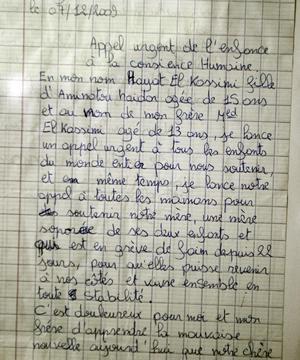 le 07/12/2009
Appel urgent de l'enfance
à la conscience Humaine.
En mon nom Hayat El Kassimi fille
d'Aminatou haidar agée de 15 ans
et au nom de mon frère Med
El Kassimi agé de 13 ans, je lance
un appel urgent à tous les enfants
du monde entier pour nous soutenir,
et en même temps, je lance notre
appel à toutes les mamans pour
soutenir notre mère, une mère
separée de ses deux enfants et
qui est en grève de faim depuis 22
jours, pour qu'elles puisse revenir
à nos côtés et vivre ensemble en
toute stabilité.
C'est douleureux pour moi et mon
frère d'apprendre la mauvaise
nouvelle aujourd'hui que notre chère